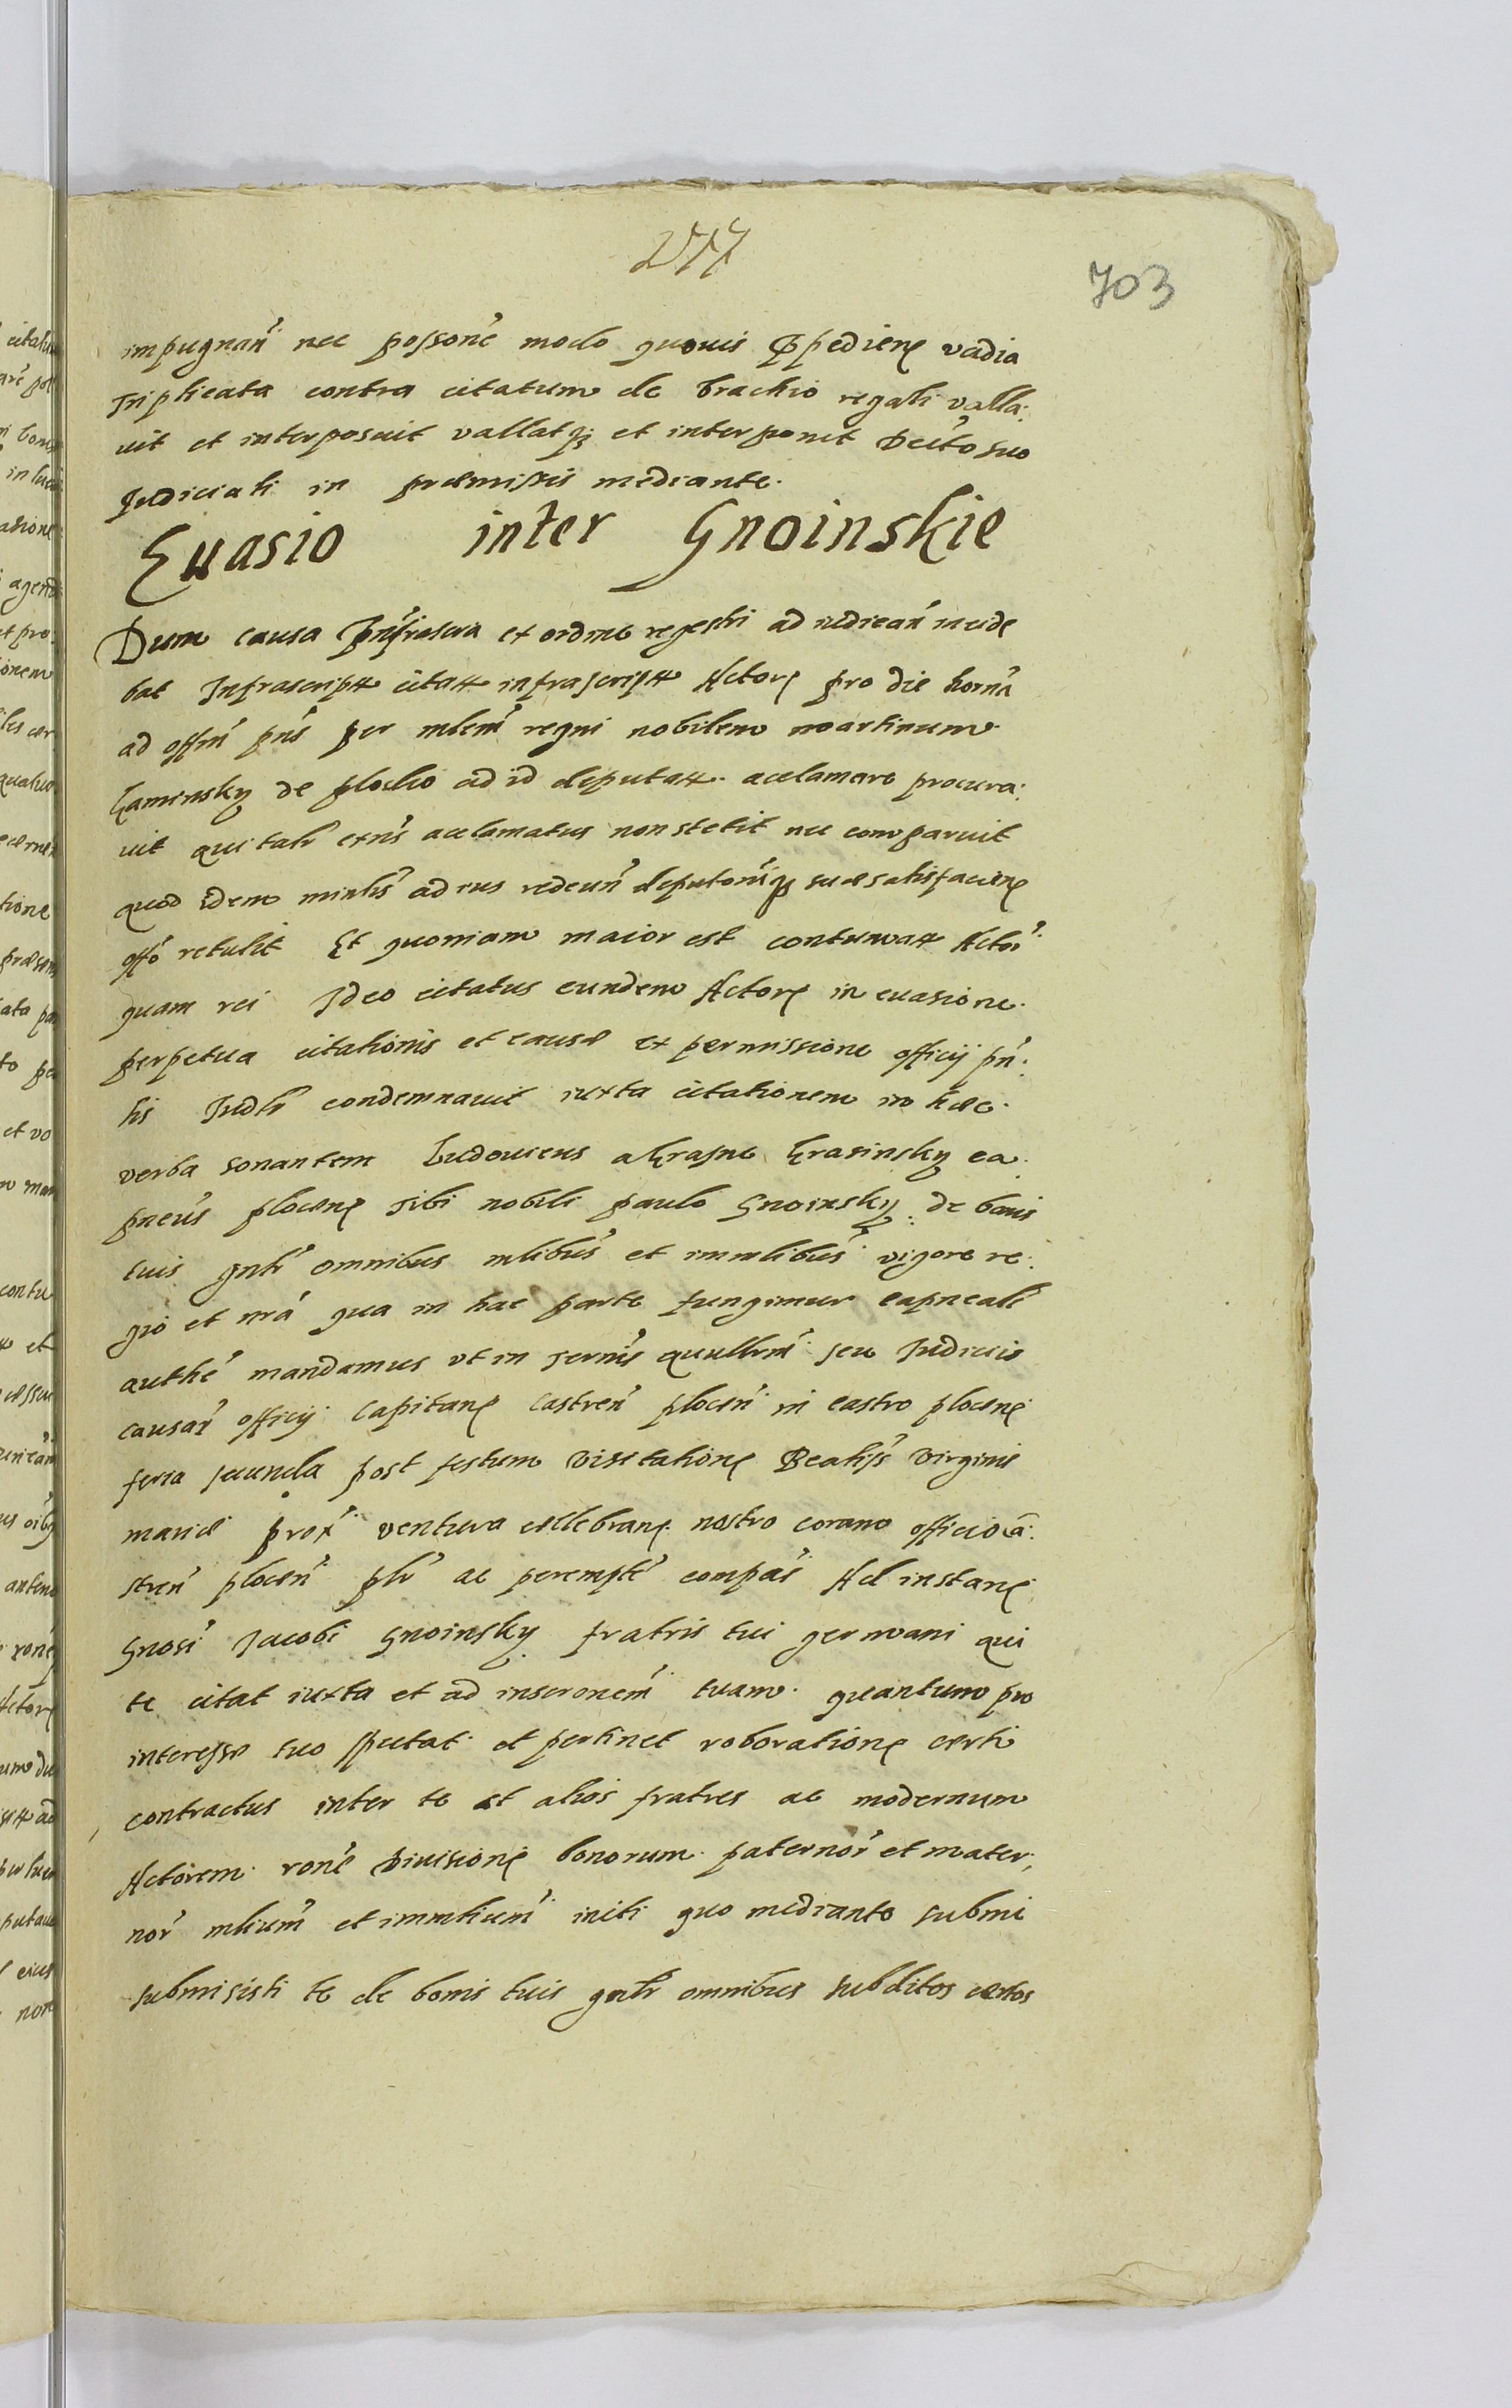 277
703
impugnan̄ nec possone̅ modo quouis p̱pedien̄ vadia
triplicata contra citatum de brachio regali valla
uit et interposuit vallatq̨ et interponit Decto suo
Judiciali in præmissis mediante.
Euasio inter Gnoinskie
Dum causa infrascra ex ordine regestri ad iudican̄ incide
bat Infrascript citat infrascript Actor pro die horna
ad offm̄ pn̄s per mlem̄ regni nobilem martinum
Kaminsky de plocko ad id deputat. acclamare procura:
uit qui talr̄ extn̄s acclamatus non stetit nec comparuit
quod idem minlis̄ ad ius redeun̄ suæ satisfacien̄
offo̅ retulit Et quoniam maior est contumat Actor̄
quam rei Ideo citatus eundem Actore in euasione.
perpetua citationis et causæ ex permissione officij pn̄:
tis Judlr̄ condemnauit iuxta citationem in hæc.
verba sonantem Ludouicus a Krasne Krasinsky ca
pneus̄ plocen̄ tibi nobili paulo Gnoinsky: de bonis
tuis gnlr̄ omnibus mlibus̄ et immlibus̄ vigore re:
gio et nr̄a qua in hac parte fungimur capneali
authe̅ mandamus vt in termīs quullm̄ seu Judicijs
causar̄ officij Capitan̄ Castren̄ plocen̄ in castro plocen̄
feria secunda post festum Visitation̄ Beatiss̄ Virginis
mariæ prox̄ ventura cellebran̄ nostro coram officio ca̅:
stren̄ plocen̄ plr̄ ac perempte̅ compas̄ Ad instan̄
Gnosi̅ Jacobi Gnoinsky fratris tui germani qui
te citat iuxta et ad inscronem̄ tuam. quantum pro
interesse tuo spectat et pertinet roboration̄ certi
contractus inter te et alios fratres ac modernum
Actorem rone̅ Diuision̄ bonorum paternor̄ et mater:
nor̄ mlium̄ et immlium̄ initi quo mediante submi
submisisti te de bonis tuis gnlr̄ omnibus subditos certos